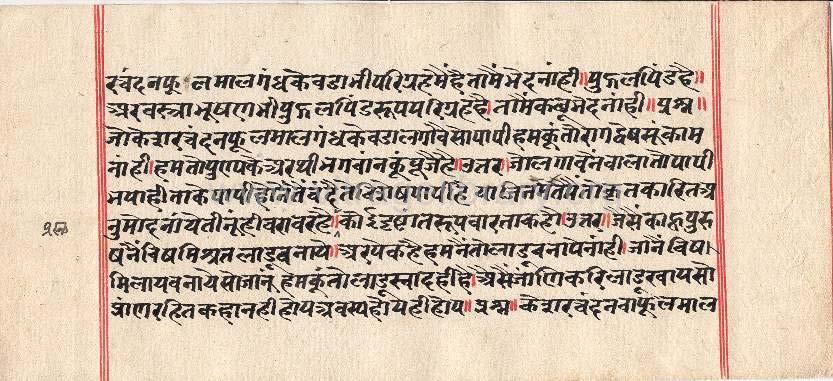 रचंदनफूलमालगंधकेवडाभीपरिग्रहमैंहैतामैंभेदनांही॥पुद्गलपिंडहै॥
अरवस्त्राभूषणभीपुद्गलपिंडरूपपरिग्रहहै।तामैंकछूभेदनांही॥प्रश्न॥
जोकेशरचंदनफूलमालगंधकेवडालगावैसोपापीहमकूंतोरागद्वेषसंकाम
नांही।हमतोपुण्यकैअरथीभगवांनकूंपूजैहै।उत्तर।जोलगावनवालातोपापी
भयाही।ताके
नुमोदनांयेतीनूंहीबराबरहै।कोईदृष्टांतरूपवारताकहो।उत्तर।जैसैंकाहूपुरु
षनैंविषमिश्रतलाडूबनाये।अरएकहैहमनैंतोलाडूबनायेनांही।जोनैंविष।
मिलायबनायेसोजानूं।हमकूंतोलाडूस्वादहीहै।असैंजांणिकरिलाडूखायसो
प्रांणरहितकहानहीहोयअवस्यहोयेहीहोय॥प्रश्न॥केशरचंदनवाफूलमाल